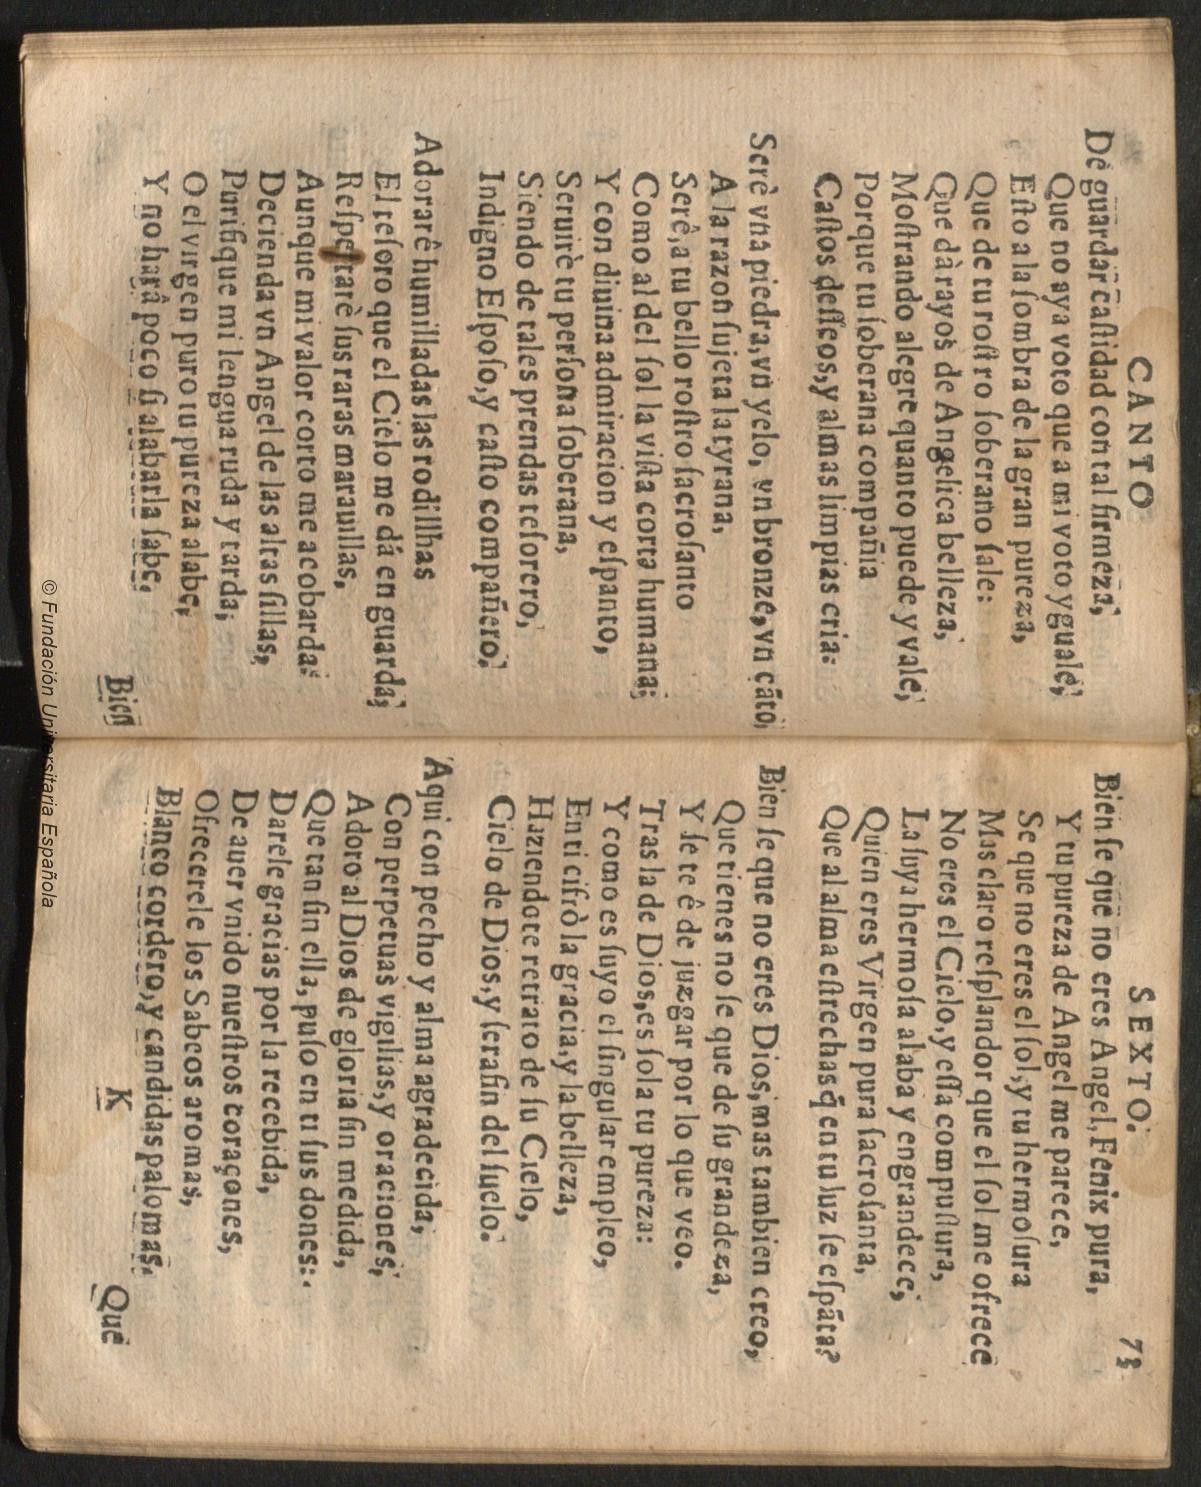 CANTO
De guardar castidad con tal firmeza,
Que no aya voto que a mi voto yguale,
Esto a la sombra de la gran pureza,
Que de tu rostro soberano sale:
Que dà rayos de Angelica belleza,
Mostrando alegre quanto puede y vale,
Porque tu soberana compañia
Castos desseos, y almas limpias cria:
Serè vna piedra, vn yelo, vn bronze, vn cãto,
A la razon sujeta la tyrana,
Serê, a tu bello rostro sacrosanto
Como al del sol la vista corta humana:
Y con diuina admiracion y espanto,
Seruirè tu persona soberana,
Siendo de tales prendas tesorero,
Indigno Esposo, y casto compañero.
Adorarê humilladas las rodillhas
El tesoro que el Cielo me dà en guarda,
Respetarè sus raras marauillas,
Aunque mi valor corto me acobarda:
Decienda vn Angel de las altas sillas,
Purifique mi lengua ruda y tarda,
O el virgen puro tu pureza alabe,
Y no harâ poco si alabarla sabe.
Bien
SEXTO. 73
Bien se que no eres Angel, Fenix pura,
Y tu pureza de Angel me parece,
Se que no eres el sol, y tu hermosura
Mas claro resplandor que el sol me ofrece
No eres el Cielo, y essa compustura,
La suya hermosa alaba y engrandece,
Quien eres Virgen pura sacrosanta,
Que al alma estrechas q̃ en tu luz se espãta?
Bien se que no eres Dios, mas tambien creo,
Que tienes no se que de su grandeza,
Y se te ê de juzgar por lo que veo.
Tras la de Dios, es sola tu pureza:
Y como es suyo el singular empleo,
En ti cifrò la gracia, y la belleza,
Haziendote retrato de su Cielo,
Cielo de Dios, y serafin del suelo.
Aqui con pecho y alma agradecida,
Con perpetuas vigilias, y oraciones,
Adoro al Dios de gloria sin medida,
Que tan sin ella, puso en ti sus dones:
Darele gracias por la recebida,
De auer vnido nuestros coraçones,
Ofrecerele los Sabeos aromas,
Blanco cordero, y candidas palomas.
K
Que
© Fundación Universitaria Española